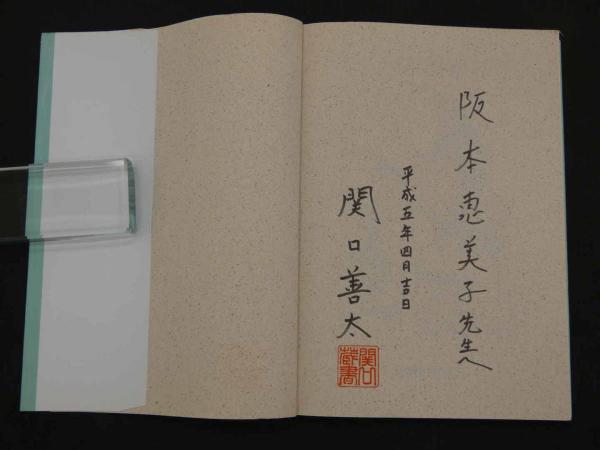 阪本惠美子先生へ
平成五年四月吉日
関口善太
関口蔵書